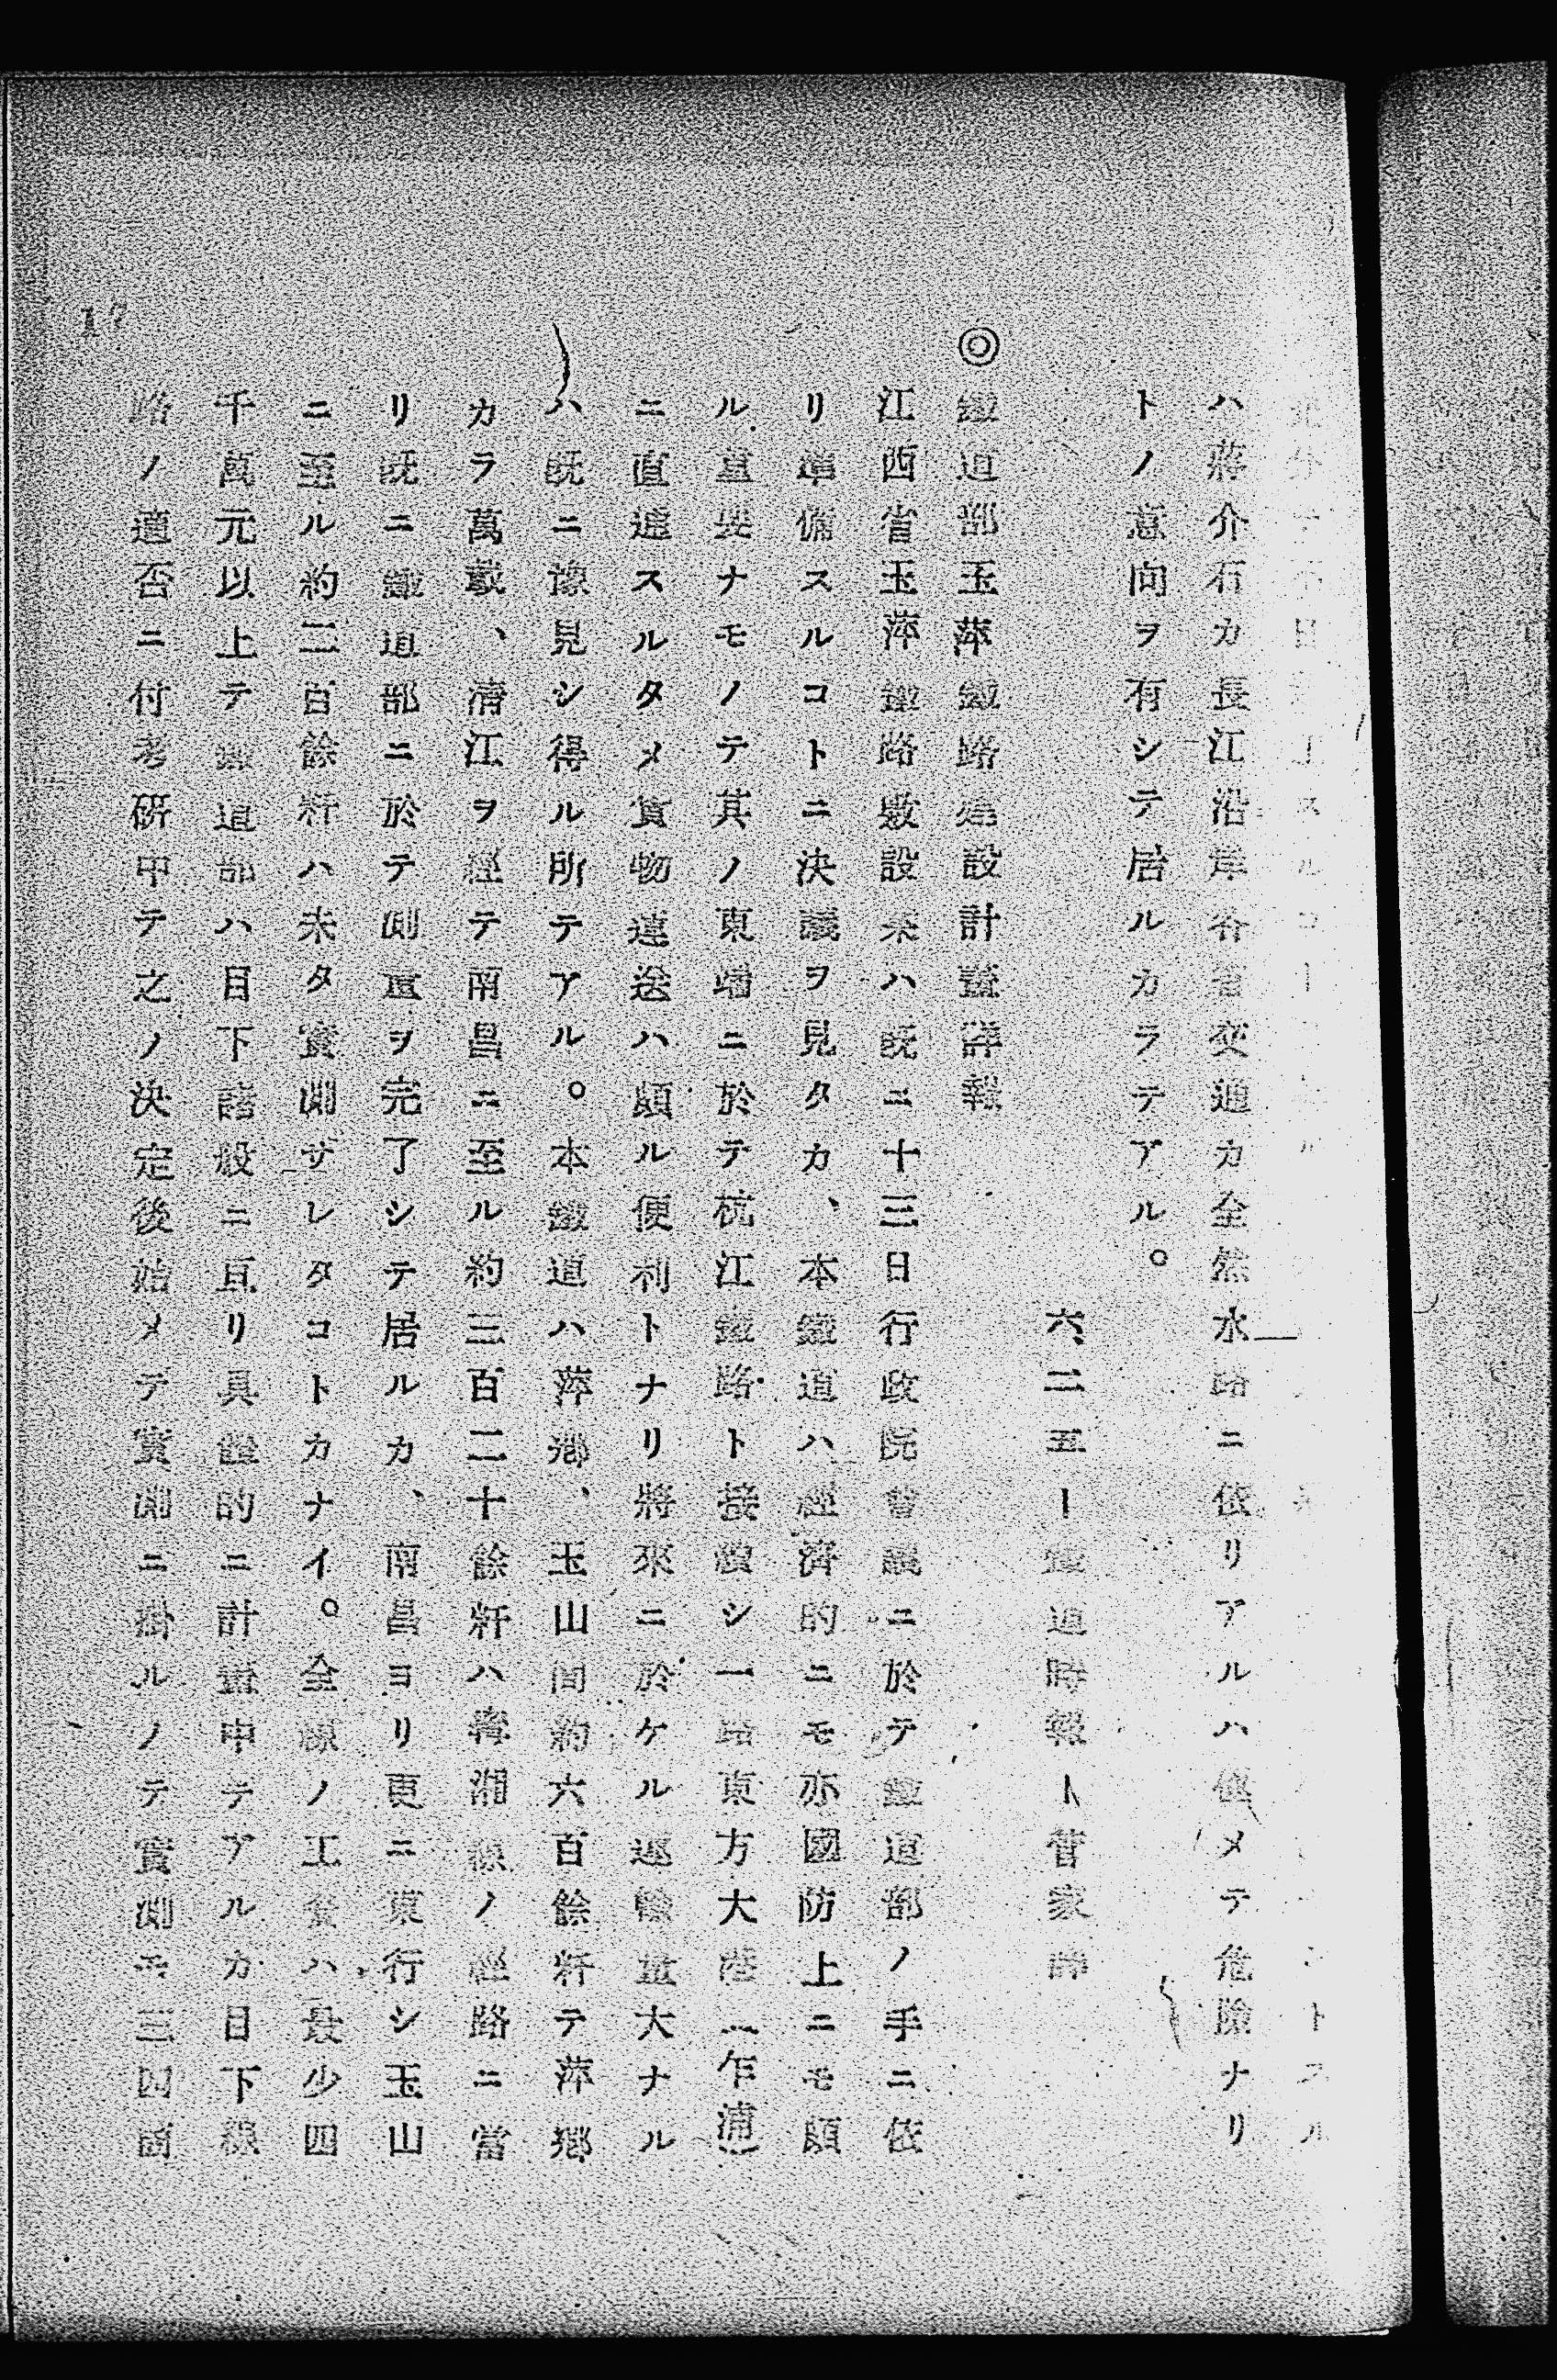 ハ蔣介石カ長江沿岸各省交通カ全然水路ニ依リアルハ極メテ危險ナリ
トノ意向ヲ有シテ居ルカラテアル。
六、二五ー鐵道時報ー菅家帥
◎鐵道部玉萍鐵路建設計畫詳報
江西省玉萍鐵路敷設案ハ既ニ十三日行政院會議ニ於テ鐵道部ノ手ニ依
リ準備スルコトニ決議ヲ見タカ、本鐵道ハ經濟的ニモ亦國防上ニモ頗
ル重要ナモノテ其ノ東端ニ於テ杭江鐵路ト接續シ一路東方大港(乍浦)
ニ直通スルタメ貨物運送ハ頗ル便利トナリ將來ニ於ケル運輸量大ナル
ハ既ニ豫見シ得ル所テアル。本鐵道ハ萍鄉、玉山間約六百餘粁テ萍鄉
カラ萬載、淸江ヲ經テ南昌ニ至ル約三百二十餘粁ハ粤湘線ノ經路ニ當
リ既ニ鐵道部ニ於テ測量ヲ完了シテ居ルカ、南昌ヨリ更ニ東行シ玉山
ニ至ル約三百餘粁ハ未タ實測サレタコトカナイ。全線ノ工費ハ最少四
千萬元以上テ鐵道部ハ目下諸般ニ亘リ具體的ニ計畫中テアルカ目下線
路ノ適否ニ付考研中テ之ノ決定後始メテ實測ニ掛ルノテ實測モ三四箇
17